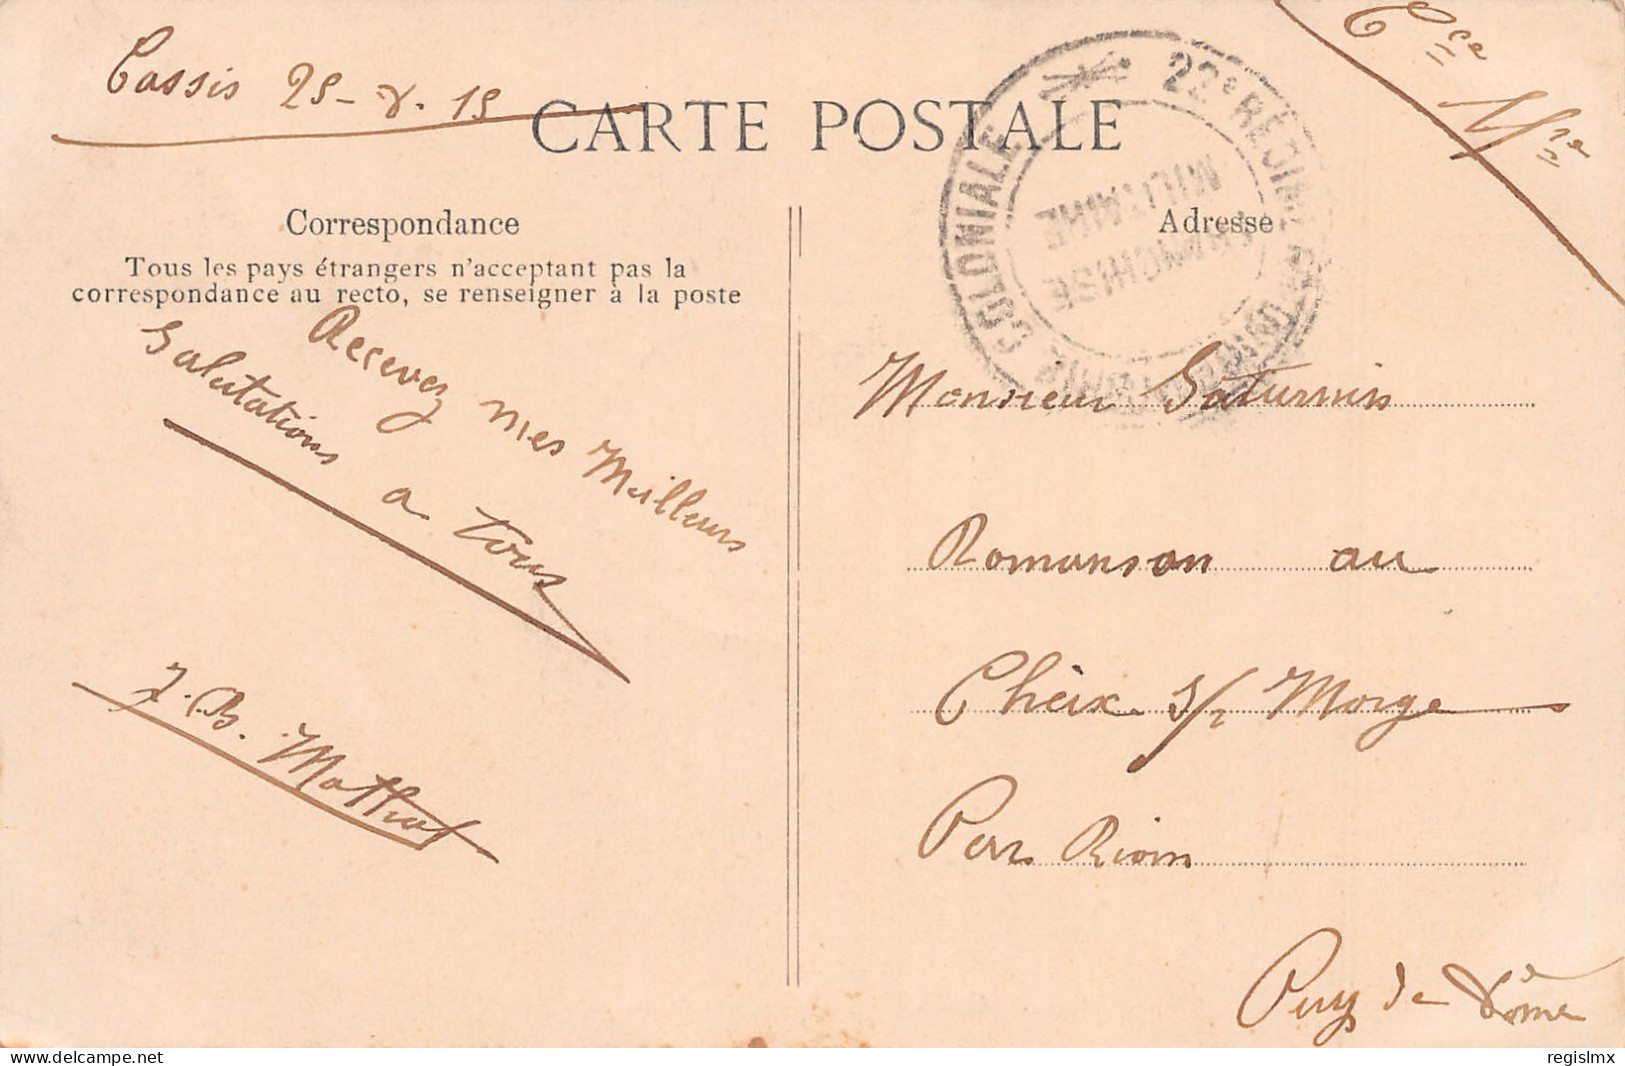 Cassis 25-8-15
CARTE POSTALE
Cce
Mre
22e RÉGIMENT D'INFANTERIE COLONIALE
FRANCHISE
MILITAIRE
Correspondance
Tous les pays étrangers n'acceptant pas la
correspondance au recto, se renseigner à la poste
Recevez mes Meilleurs
Salutations a tous
J.B. Mathieu
Adresse
Monsieur Saturnin
Romanson au
Cheix s/r Morge
Par Riom
Puy de Dôme
regislmx